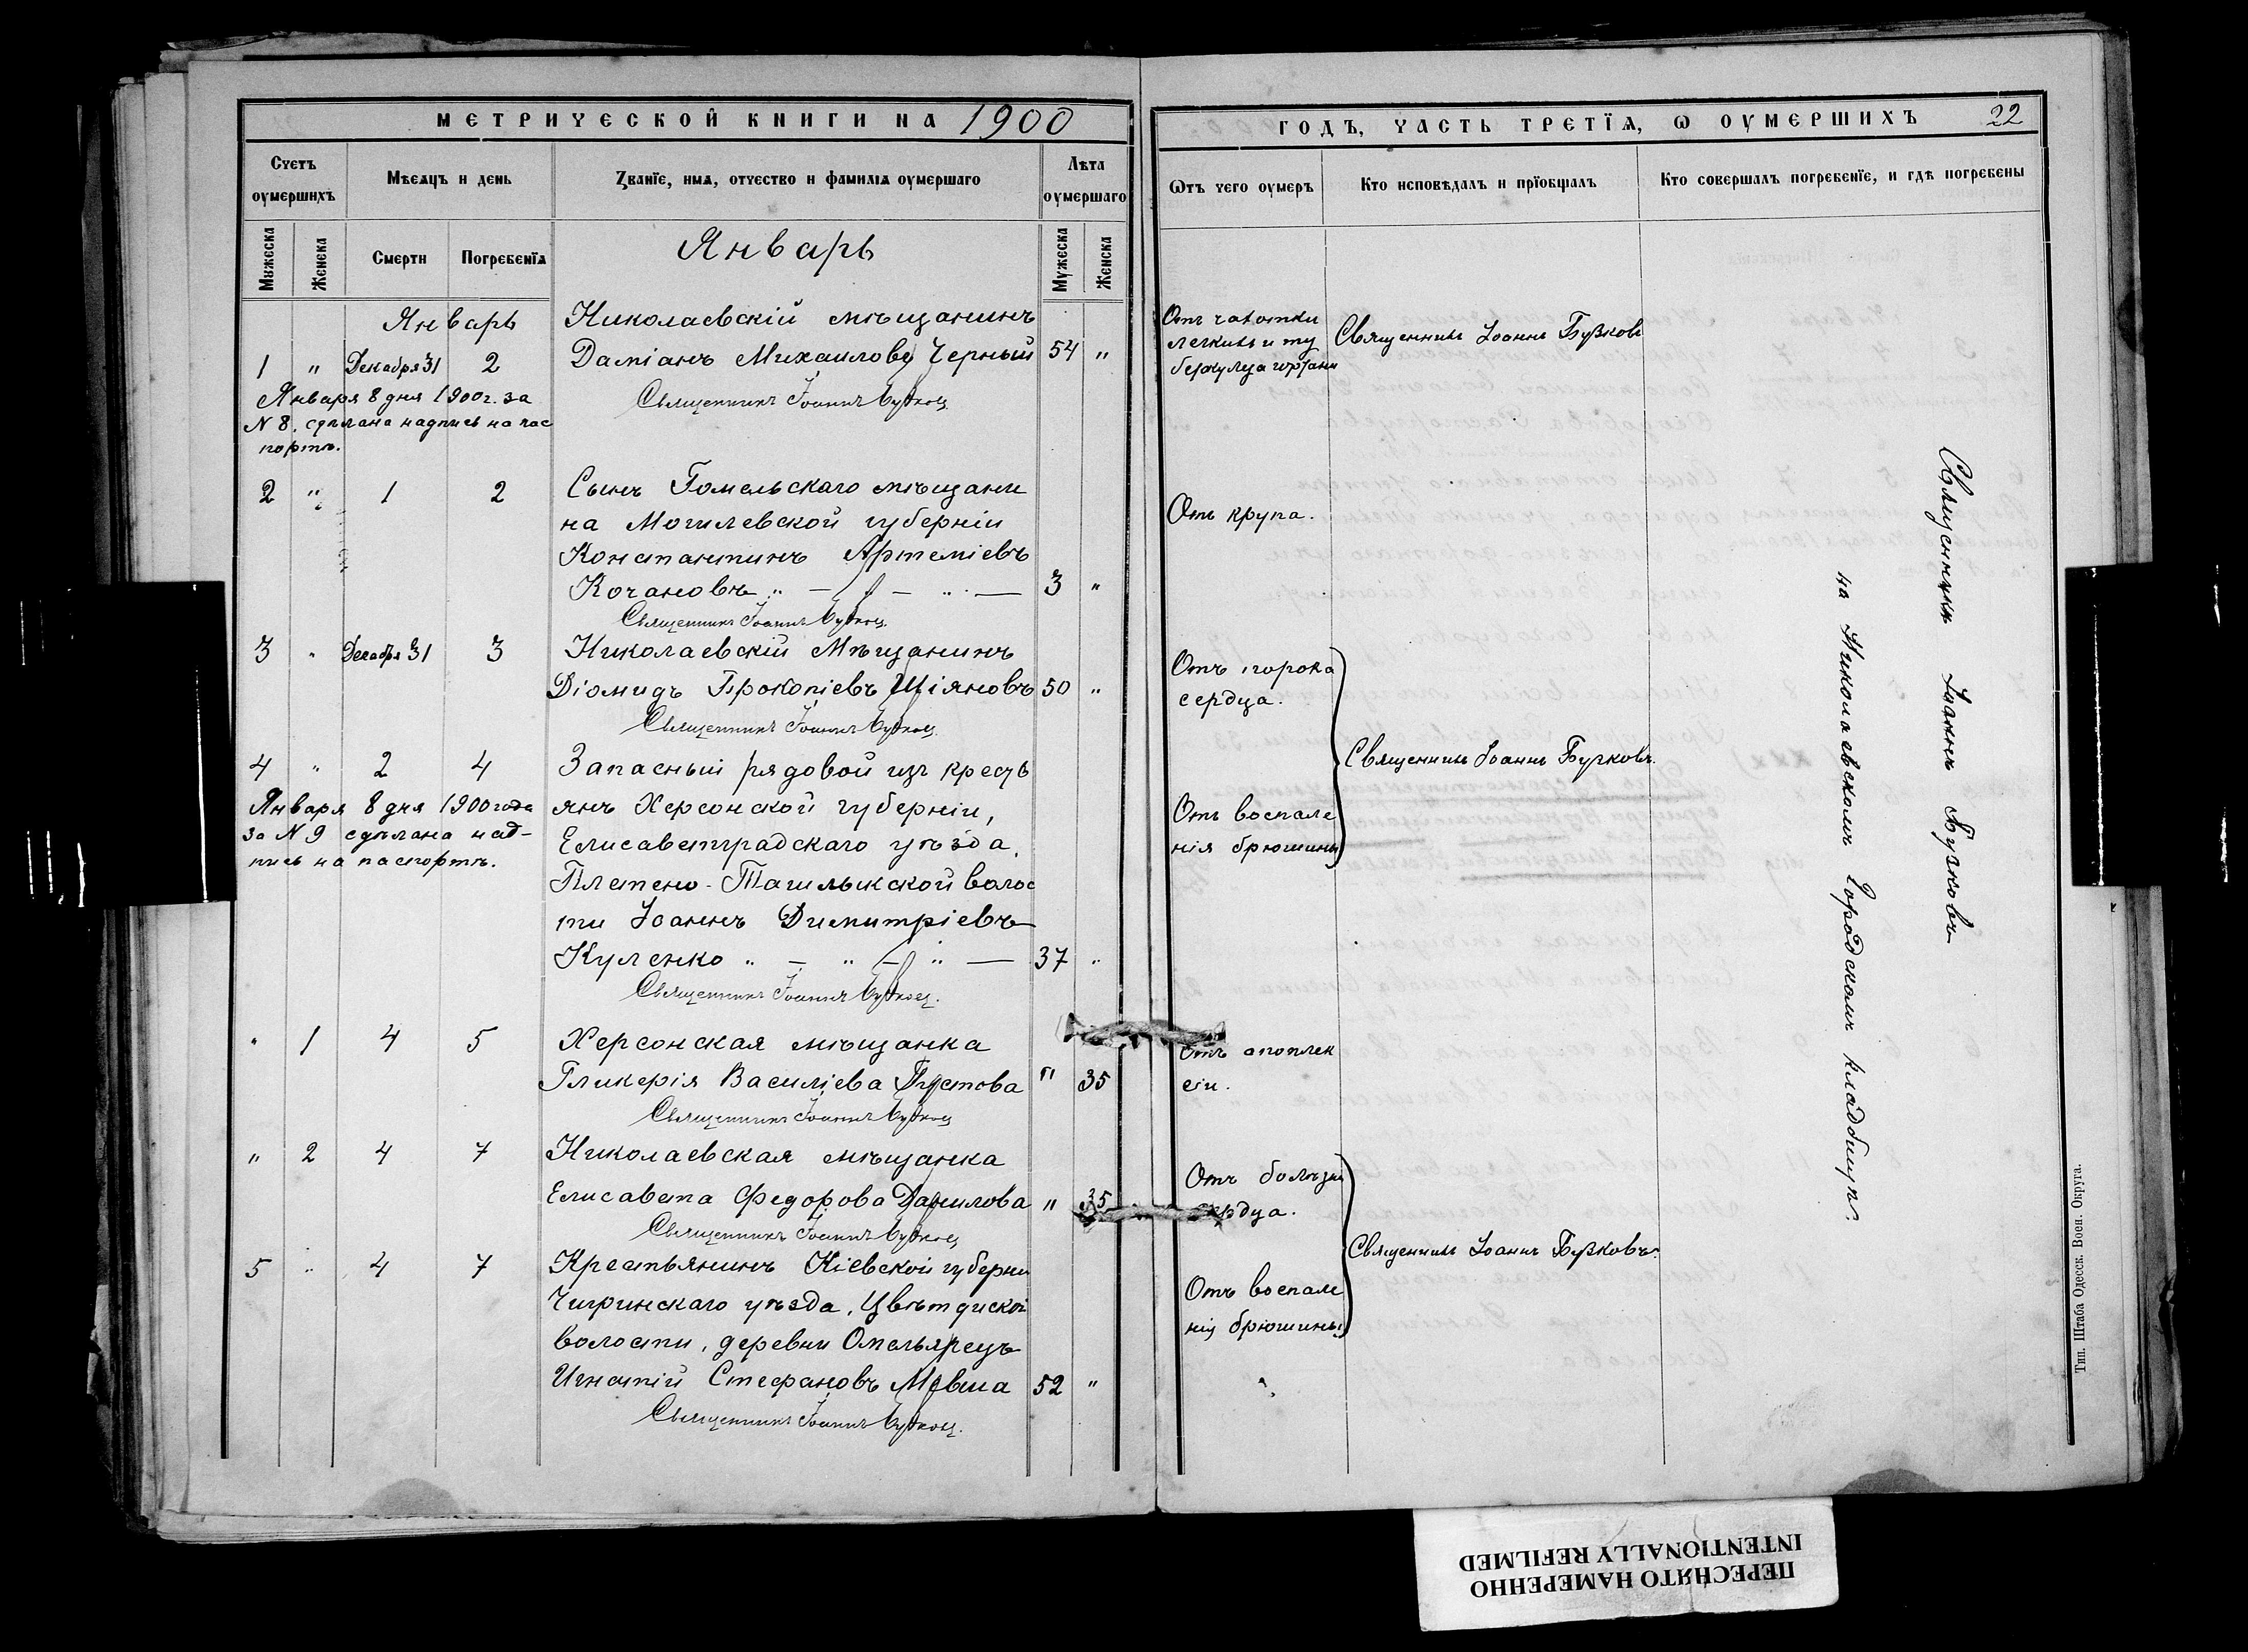 МЕТРИЧЕСКОЙ КНИГИ НА 1900
Счетъ оумершихъ
Мѣсяцъ и день
Званїе, имя, отчество и фамилія оумершаго
Лѣта оумершаго
Мужеска
Женска
Смерти
Погребенїя
Январь
Мужеска
Женска
Январь
Николаевскій мѣщанинъ
1 " Декабря 31 2 Даміанъ Михаиловъ Черный 54 "
Января 8 дня 1900 г. за
N 8. сдѣлана надпись на пас
портѣ.
Священникъ Іоаннъ
2 " 1 2 Сынъ Гомельскаго мѣщани
на Могилевской губерніи
Константинъ Артеміевъ
Кочановъ " — " — 3 "
Священникъ Іоаннъ
3 " Декабря 31 3 Николаевскій Мѣщанинъ
Діомидъ Прокопіевъ Шіяновъ 50 "
Священникъ Іоаннъ
4 " 2 4 Запасный рядовой изъ крестъ
янъ Херсонской губерніи,
Января 8 дня 1900 года
за N 9 сдѣлана над-
пись на паспортѣ.
Елисаветградскаго уѣзда,
Плетено-Ташлыкской волос
ти Іоаннъ Димитріевъ
Куленко " — " — " — 37 "
Священникъ Іоаннъ
" 1 4 5 Херсонская мѣщанка
Гликерія Василіева Пустова " 35
Священникъ Іоаннъ
" 2 4 7 Николаевская мѣщанка
Елисавета Федорова Данилова " 35
Священникъ Іоаннъ
5 " 4 7 Крестьянинъ Кіевской губерни
Чигринскаго уѣзда,
волости, деревни
Игнатій Стефановъ 52 "
Священникъ Іоаннъ
ГОДЪ, ЧАСТЬ ТРЕТЇЯ, Ѡ ОУМЕРШИХЪ 22
Ѡтъ чего оумеръ
Кто исповѣдалъ и прїобщалъ
Кто совершалъ погребенїе, и гдѣ погребены
Отъ чахотки
легкихъ и ту
беркулеза гортани
Священникъ Іоаннъ Бузковъ
Отъ крупа.
Отъ порока
сердца.
Священникъ Іоаннъ Бузковъ.
Отъ воспале
нія брюшины
Отъ апоплек
сіи.
Отъ болѣзни
сердца.
Священникъ Іоаннъ Бузковъ.
Отъ воспале
нія брюшины
Священникъ Іоаннъ Бузковъ
на Николаевскомъ Городскомъ кладбищѣ.
Тип. Штаба Одесск. Воен. Округа.
ПЕРЕСНЯТО НАМЕРЕННО
INTENTIONALLY REFILMED